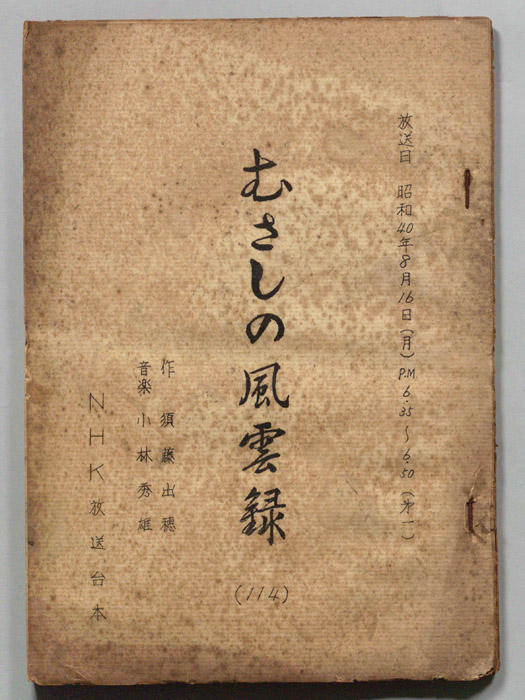 放送日 昭和40年8月16日(月) P.M. 6.35〜6.50 (第一)
むさしの風雲録
(114)
作 須藤出穂
音楽 小林秀雄
NHK放送台本